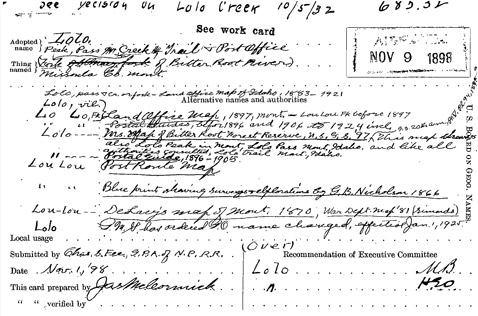 See decision on Lolo Creek 10/5/32 683.32
See work card
Adopted name } Lolo.
Peak, Pass Creek & Trail & Post Office
Thing named } Fork of Bitter Root River
Missoula Co. Mont.
NOV 9 1898
U. S. BOARD ON GEOG. NAMES.
Lolo, pass or fork - Land office map of Idaho, 1883-1921
Alternative names and authorities
Lolo, vil.
Lo Lo, Land Office Map, 1897, Mont - Loulou Pk before 1897
Postal Guides, 1896 and 1906 to 1924 incl.
Lolo --- Mss. Map of Bitter Root Forest Reserve, U.S.G.S. '97. This map shows
also Lolo Peak in Mont. Lolo Pass Mont. Idaho. and like all
authorities consulted Lolo trail Mont. Idaho.
Postal Guide, 1896-1905
Lou Lou Post Route Map
" " Blue print showing surveys & explorations by G.B. Nicholson 1866
Lou-Lou -- DeLacy's map of Mont. 1870, War Dept. Map '81 (Symonds)
Lolo P.M.G. has ordered P.O. name changed, effective Jan. 1, 1925
Local usage
(Over)
Submitted by Chas. S. Fee, G.P.A. of N.P.R.R.
Recommendation of Executive Committee
Date Nov. 1, '98
Lolo M.B.
This card prepared by Jas McCormick
" H.G.O.
" " verified by